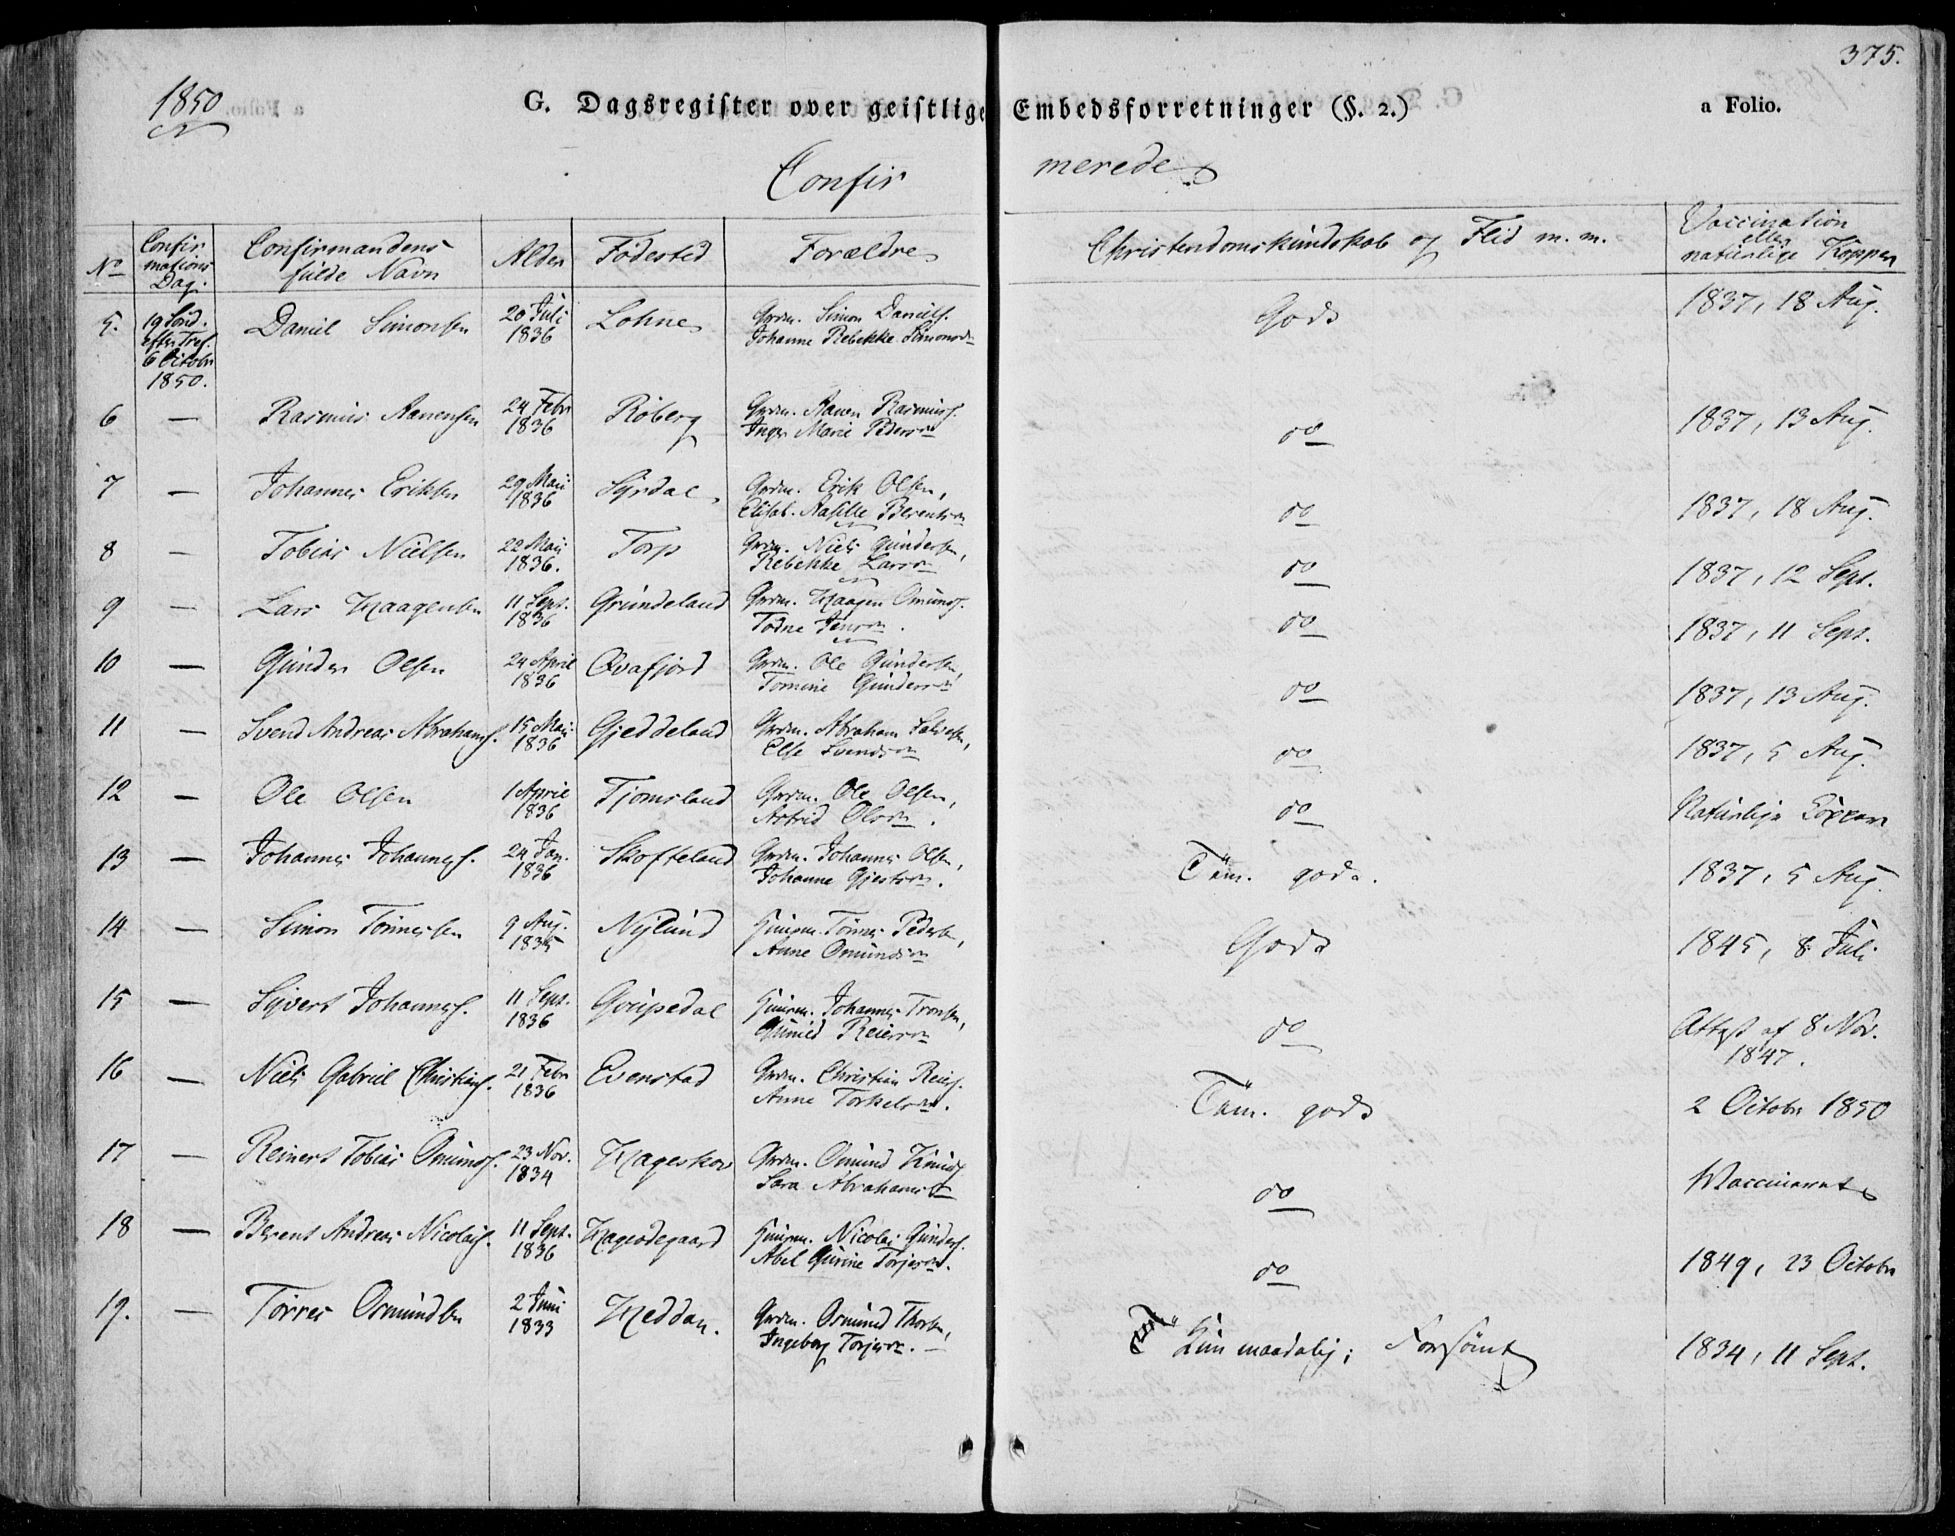 375.
1850
G. Dagsregister over geistlige Embedsforretninger (§. 2.)
a Folio.
Confirmerede
No
Confirmations Dag.
Confirmandens fulde Navn
Alder
Fødested
Forældre
Christendomskundskab og Flid m. m.
Vaccination eller naturlige Kopper
5. 19 Sønd. efter Tref. 6 Octobr 1850. Daniel Simonsen 20 Juli 1836 Lohne Grdm. Simon Daniels. Johanne Rebekke Simonsdr Godt 1837, 18 Aug.
6 — Rasmus Aanensen 24 Febr 1836 Röberg Grdm. Aanen Rasmus. Inger Marie Pedersdr do 1837, 13 Aug.
7 — Johannes Eriksen 29 Mai 1836 Syrdal Grdm. Erik Olsen, Elisab. Berentsdr do 1837, 18 Aug.
8 — Tobias Nielsen 22 Mai 1836. Torp Grdm. Niels Gundersen, Rebekke Larsdr do 1837, 12 Sept.
9 — Lars Haagensen 11 Sept. 1836 Grundeland Grdm. Haagen Omunds. Todne Jensdr. do 1837, 11 Sept.
10 — Gunder Olsen 24 April 1836 Qvafjord Grdm. Ole Gundersen, Tomine Gundersdr do 1837, 13 Aug.
11 — Svend Andreas Abrahams. 15 Mai 1836 Gjeddeland Grdm. Abraham Salvesen, Else Svendsdr do 1837, 5 Aug.
12 — Ole Olsen 1 April 1836 Tjomsland Grdm. Ole Olsen, Astrid Olsdr. do Naturlige Kopper
13 — Johannes Johanness. 24 Jan. 1836 Skofteland Grdm. Johannes Olsen, Johanne Gjestsdr. Tem. godt. 1837, 5 Aug.
14 — Simon Tönnessen 9 Aug. 1835 Nylund Huusm. Tönnes Peders., Anne Omundsdr Godt 1845, 8 Juli
15 — Syvert Johanness. 11 Sept. 1836 Grupedal Huusm. Johannes Tronsen, Gunild Reiersdr do Attest af 8 Nov. 1847.
16 — Niels Gabriel Christians. 21 Febr 1836 Evenstad Grdm. Christian Reiers. Anne Torkelsdr. Tem. godt 2 Octobr 1850
17 — Reinert Tobias Omunds. 23 Nov. 1834 Hageskov Grdm. Omund Knuds. Sara Abrahamsdr do Vaccineret
18 — Berent Andreas Nicolais. 11 Sept. 1836 Hageödegaard Huusm. Nicolai Gunders. Abel Gurine Torjersdr. do 1849, 23 Octobr
19. — Torres Osmundsen 2 Juni 1833 Heddan. Grdm. Osmund Thorsen, Ingeborg Torjersdr. — Kun maadelig; Forsömt 1834, 11 Sept.